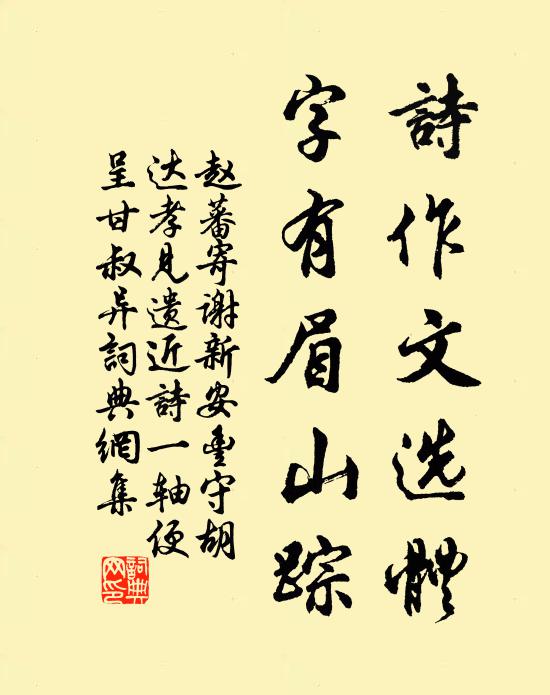 詩作文选體
字有眉山踪
赵蕃寄谢新安壘守胡
达孝見遗近詩一轴便
呈甘叔异詞典網集
詞典網印